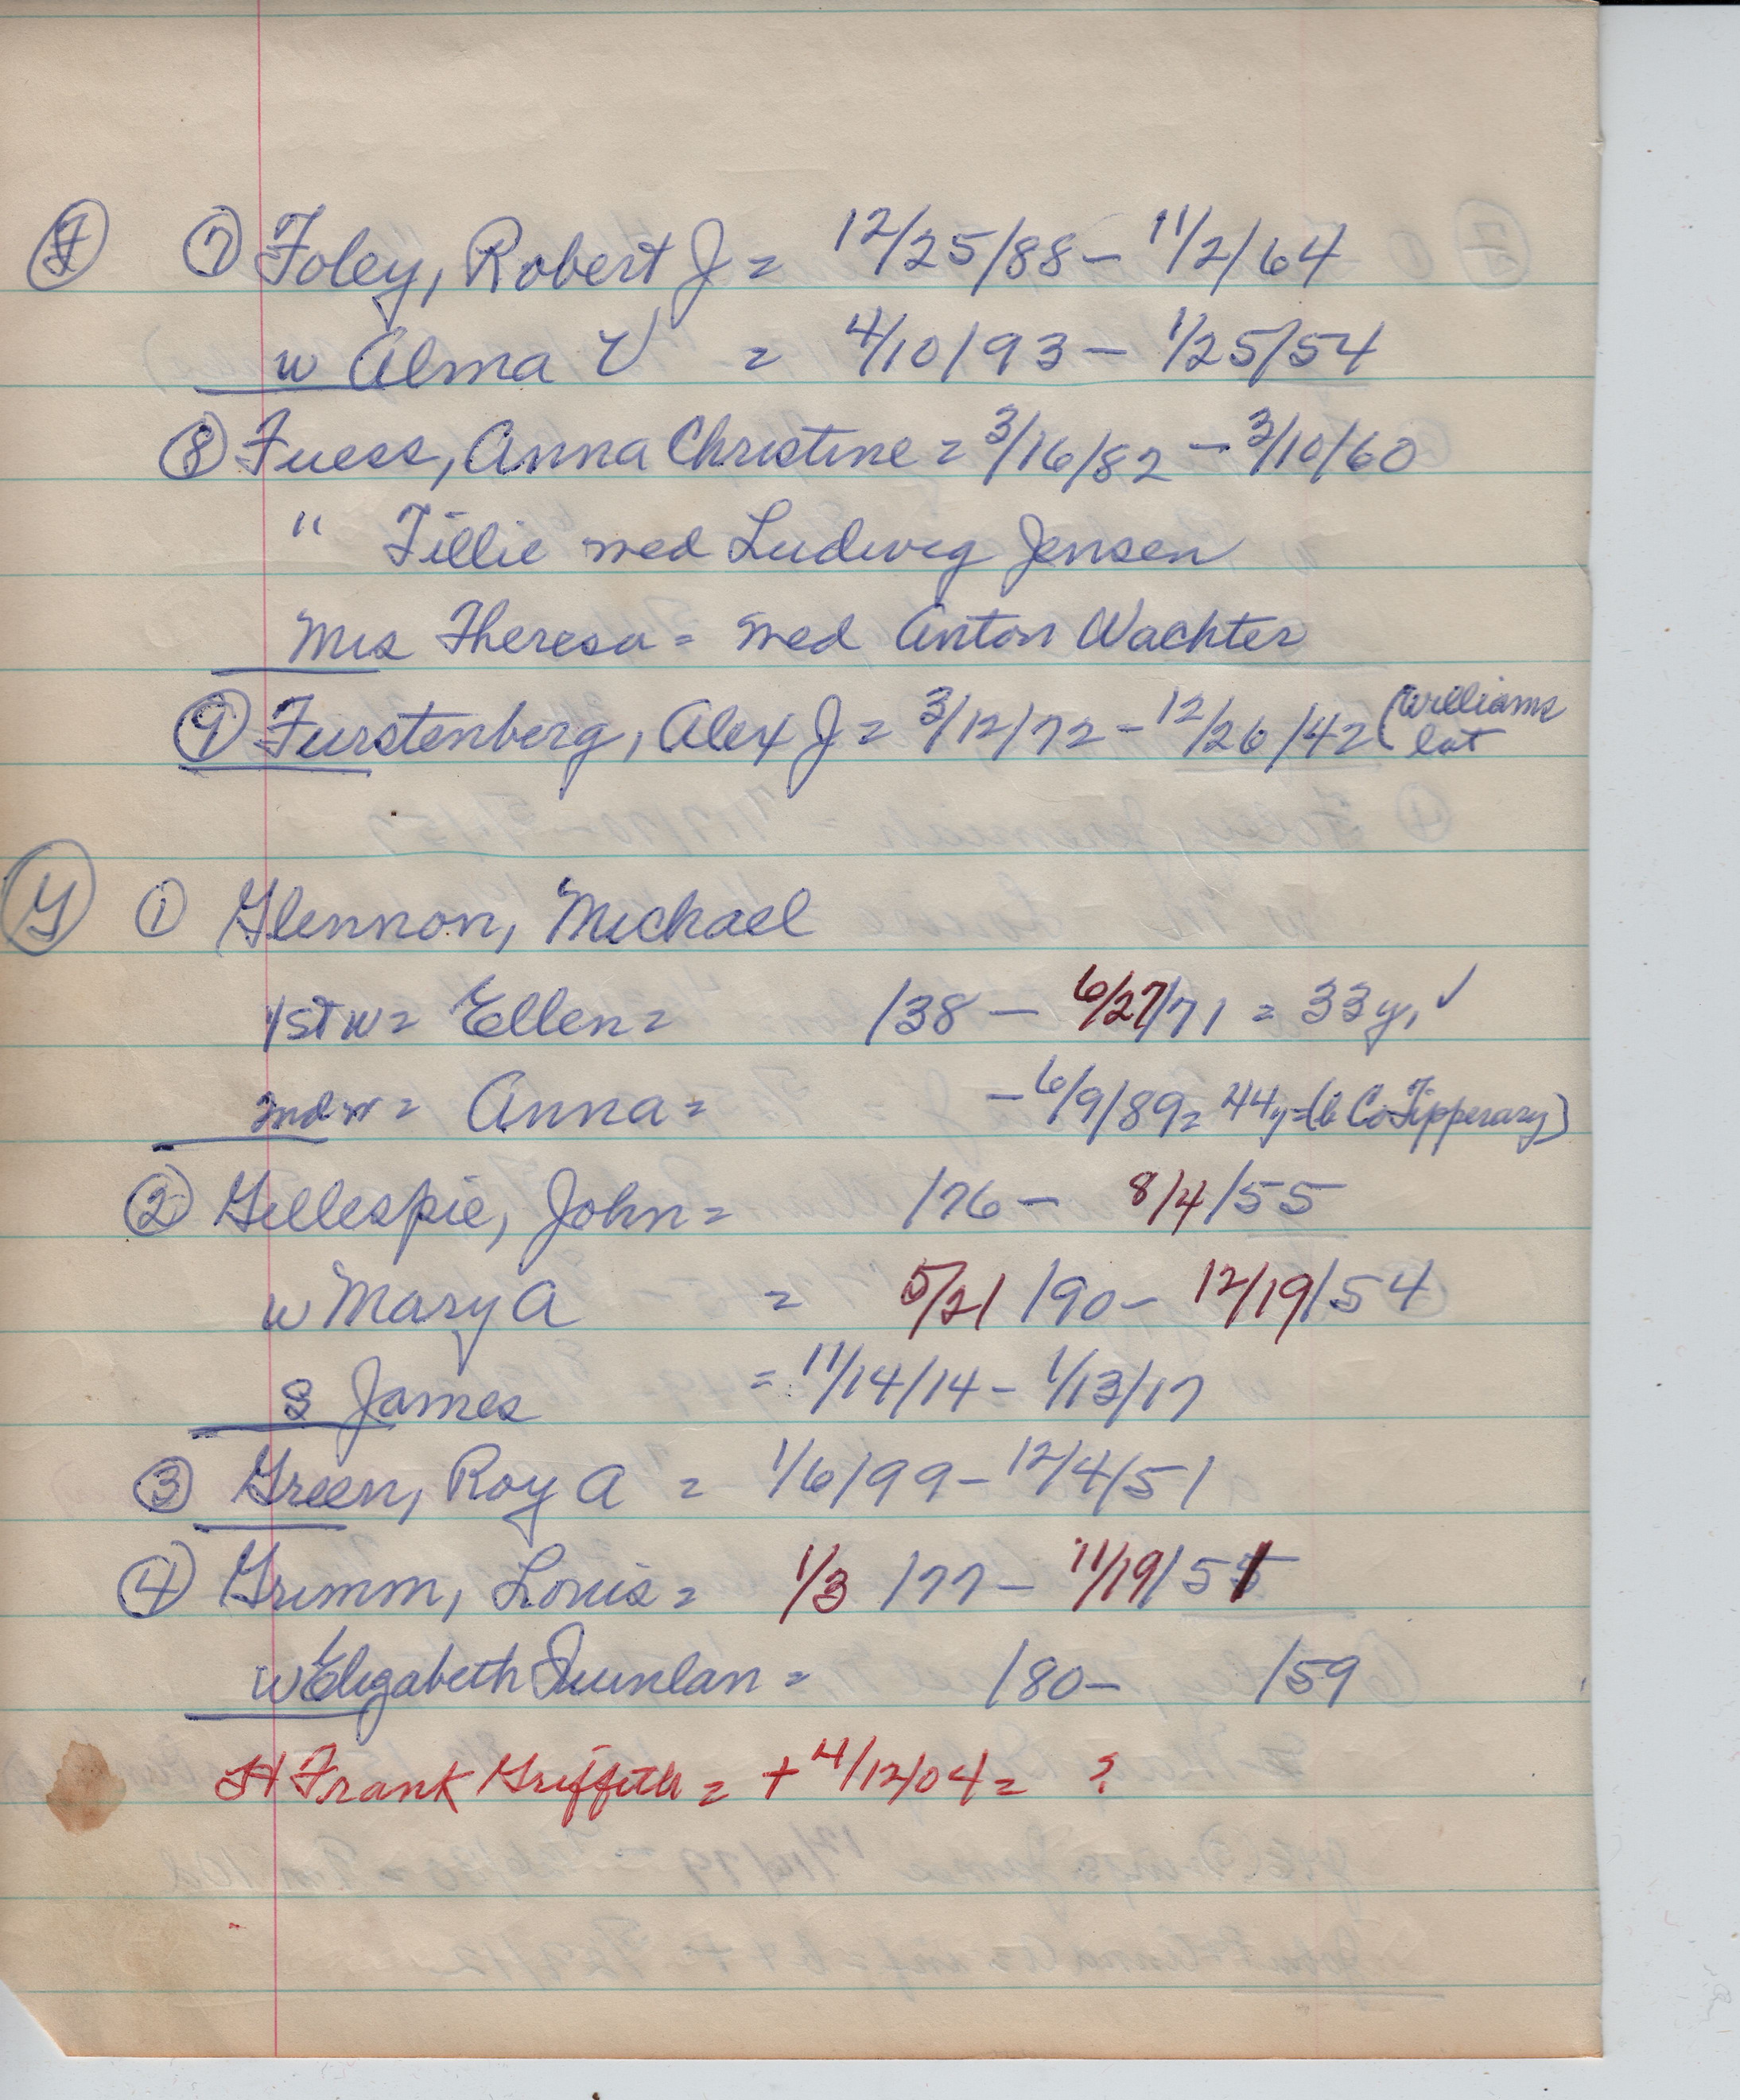 F 7 Foley, Robert J = 12/25/88 – 11/2/64
w Alma V = 4/10/93 – 1/25/54
8 Fuess, Anna Christine = 3/16/82 – 3/10/60
" Tillie med Ludwig Jensen
Mrs Theresa = med Anton Wachter
9 Furstenberg, Alex J = 3/12/72 – 12/26/42 (Williams
lot
G 1 Glennon, Michael
1st w = Ellen = /38 – 6/27/71 = 33y, ✓
2nd w = Anna = – 6/9/89 = 44y = (b Co Tipperary)
2 Gillespie, John = /76 – 8/4/55
w Mary A = 5/21/90 – 12/19/54
s James = 11/14/14 – 1/13/17
3 Green, Roy A = 1/6/99 – 12/4/51
4 Grimm, Louis = 1/3/77 – 11/19/51
w Elizabeth Quinlan = /80 – /59
Frank Griffith = + 4/12/04 = ?